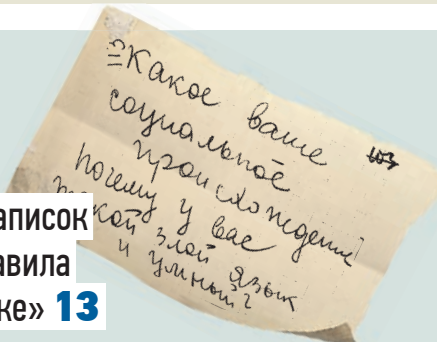 Какое ваше
социальное
происхождение?
почему у вас
такой злой язык
и умный?
аписок
авила
ке» 13